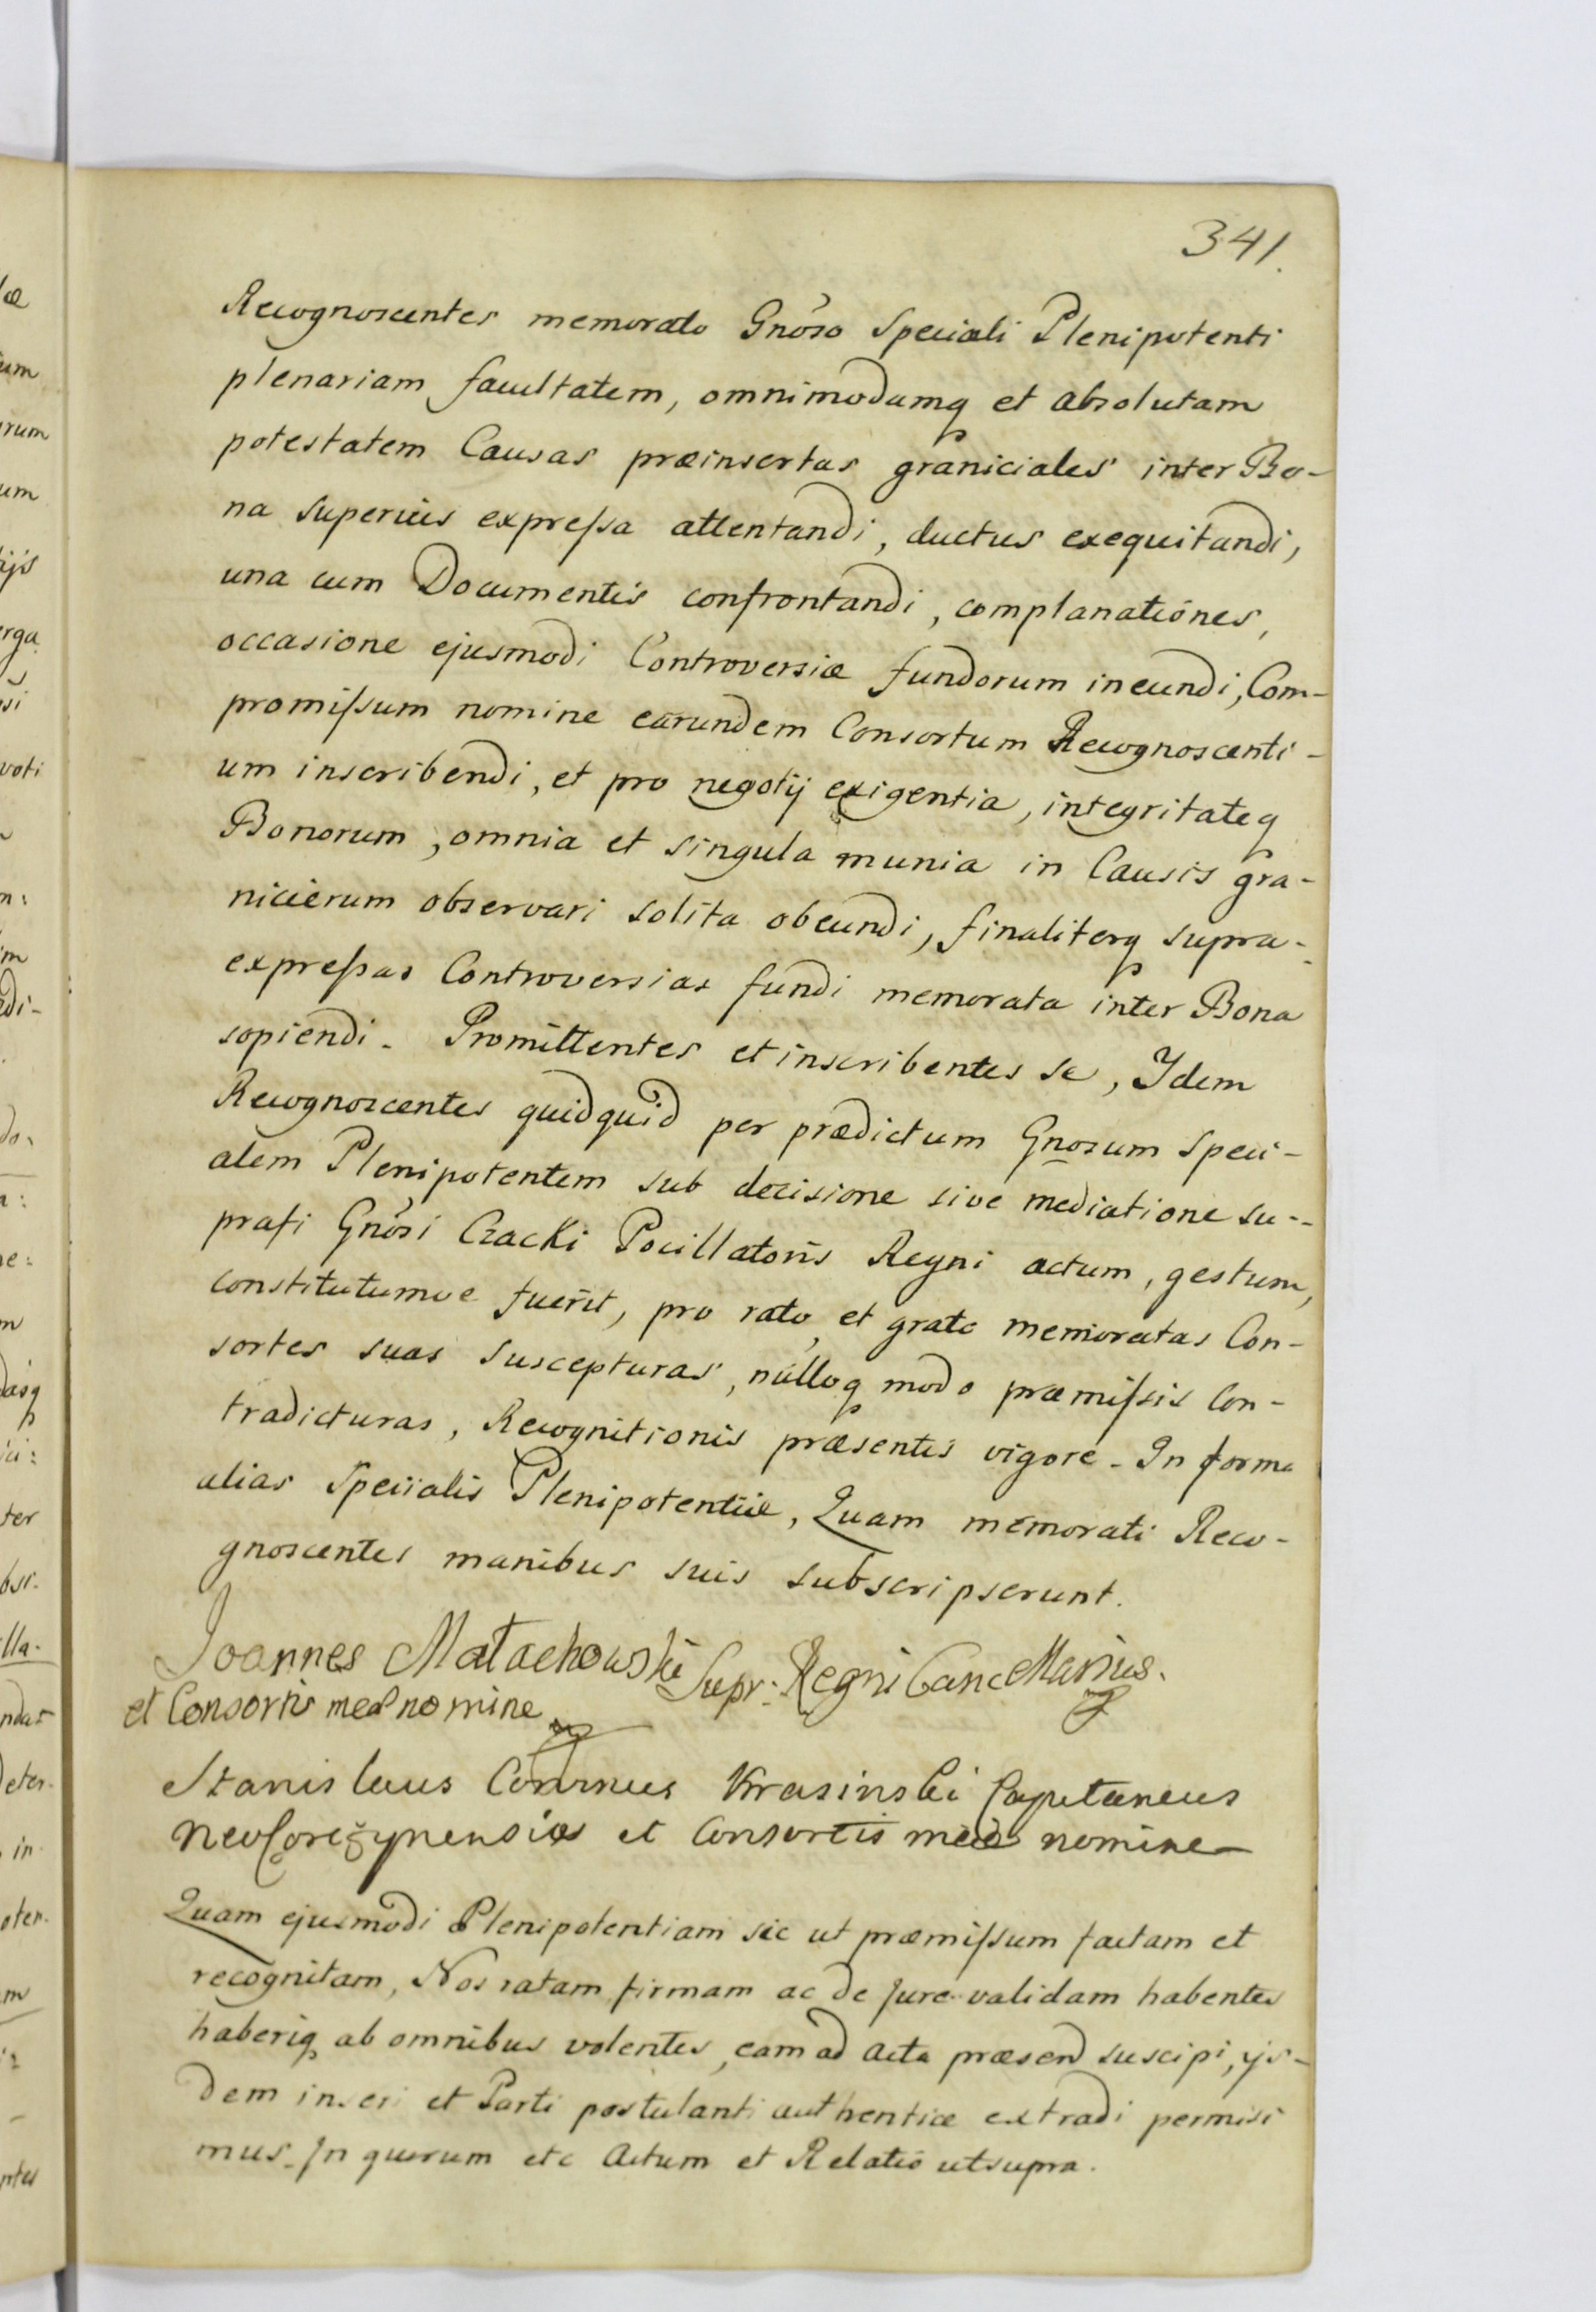 341.
Recognoscentes memorato Gnõso Speciali Plenipotenti
plenariam facultatem, omnimodamq et absolutam
potestatem Causas præinsertas graniciales inter Bo-
na superius expreſsa attentandi, ductus exequitandi,
una cum Documentis confrontandi, complanationes,
occasione ejusmodi Controversiæ fundorum ineundi, Com-
promiſsum nomine earundem Consortum Recognoscenti-
um inscribendi, et pro negotij exigentia, integritateq
Bonorum, omnia et singula munia in Causis gra-
nicierum observari solita obeundi, finaliterq supra-
expreſsas Controversias fundi memorata inter Bona
sopiendi. Promittentes et inscribentes se, Idem
Recognoscentes quidquid per prædictum Gnosum Speci-
alem Plenipotentem sub decisione sive mediatione su-
prafi Gnõsi Czacki Pocillatoris Regni actum, gestum,
constitutumve fuerit, pro rato, et grato memoratas Con-
sortes suas suscepturas, nulloq modo præmiſsis Con-
tradicturas, Recognitionis præsentis vigore. In forma
alias Specialis Plenipotentiæ, Quam memorati Reco-
gnoscentes manibus suis subscripserunt.
Joannes Małachowski Supr: Regni Cancellarius.
et Consortis meæ nomine
Stanislaus Corvinus Krasinski Capitaneus
et Consortis meæ nomine
Quam ejusmodi Plenipotentiam sic ut præmiſsum factam et
recognitam, Nos ratam firmam ac de jure validam habentes
haberiq ab omnibus volentes, eam ad Acta præsen suscipi, ijs-
dem inseri et Parti postulanti authentice extradi permisi
mus. In quorum etc Actum et Relatio ut supra.